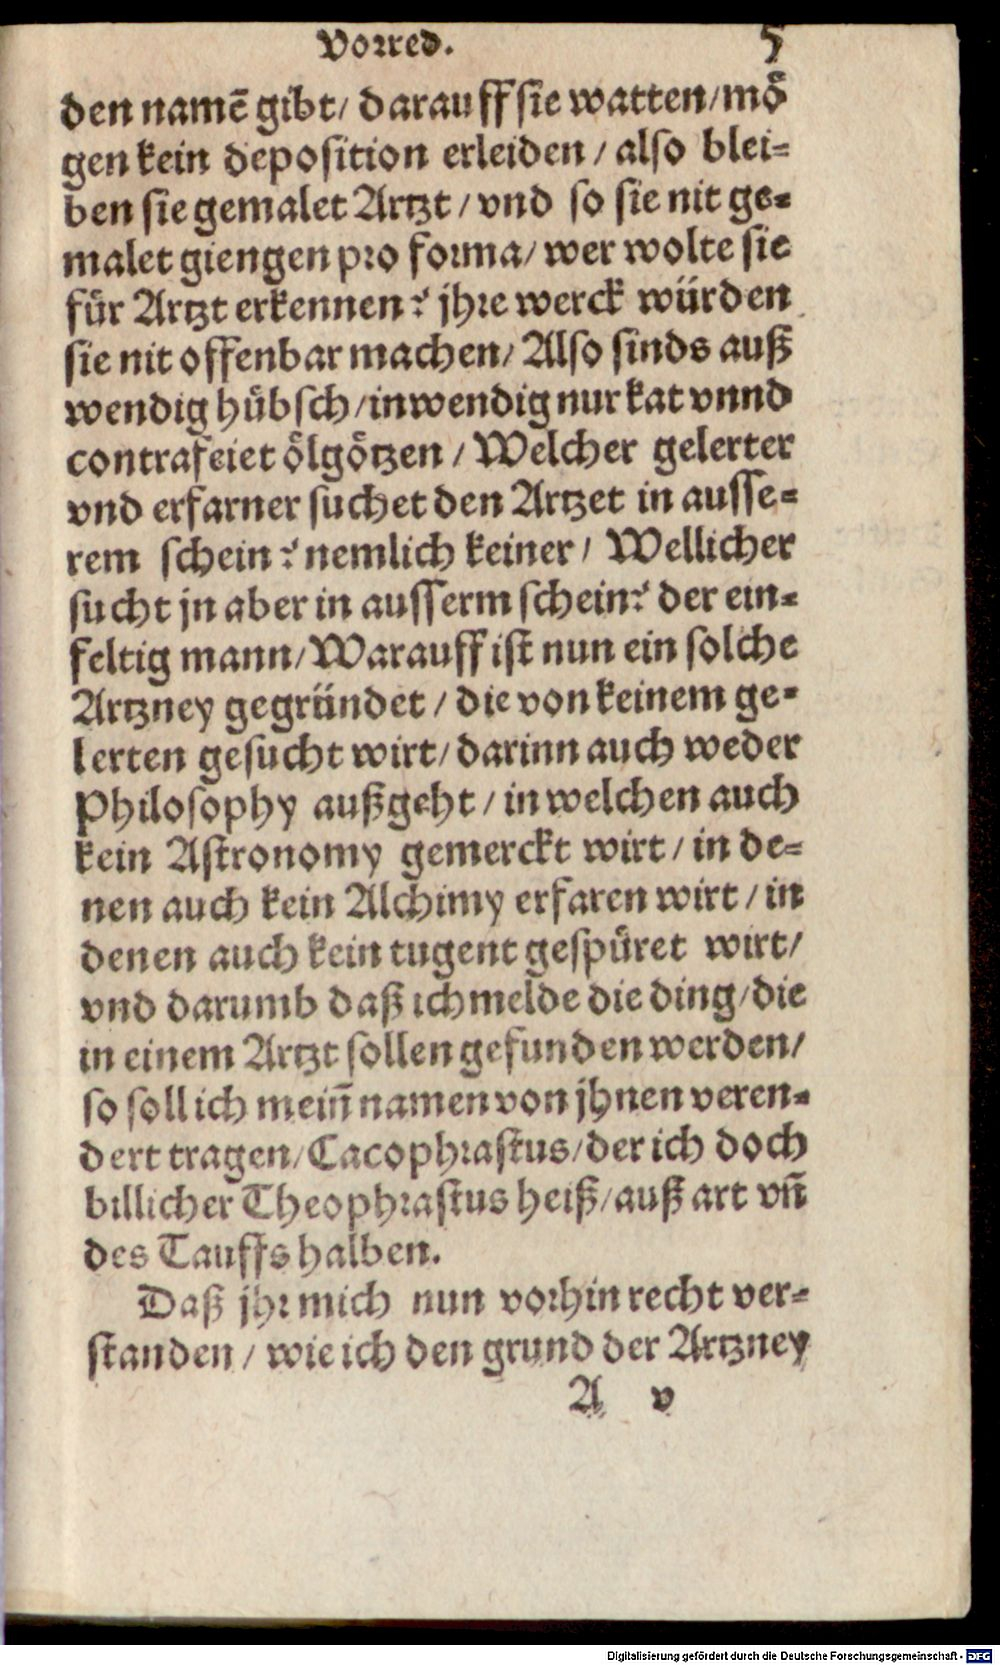 Vorred. 5
den namē gibt/ darauff sie watten/mö
gen kein deposition erleiden / also blei-
ben sie gemalet Artzt / vnd so sie nit ge-
malet giengen pro forma/ wer wolte sie
für Artzt erkennen? jhre werck würden
sie nit offenbar machen/ Also sinds auß
wendig hübsch/inwendig nur kat vnnd
contrafeiet ölgötzen / Welcher gelerter
vnd erfarner suchet den Artzet in ausse-
rem schein? nemlich keiner/ Wellicher
sucht jn aber in ausserm schein? der ein-
feltig mann/Warauff ist nun ein solche
Artzney gegründet / die von keinem ge-
lerten gesucht wirt/ darinn auch weder
Philosophy außgeht / in welchen auch
kein Astronomy gemerckt wirt / in de-
nen auch kein Alchimy erfaren wirt / in
denen auch kein tugent gespüret wirt/
vnd darumb daß ich melde die ding/die
in einem Artzt sollen gefunden werden/
so soll ich mein̄ namen von jhnen veren-
dert tragen/Cacophrastus/der ich doch
billicher Theophrastus heiß/auß art vn̄
des Tauffs halben.
Daß jhr mich nun vorhin recht ver-
standen / wie ich den grund der Artzney
A v
Digitalisierung gefördert durch die Deutsche Forschungsgemeinschaft - DFG